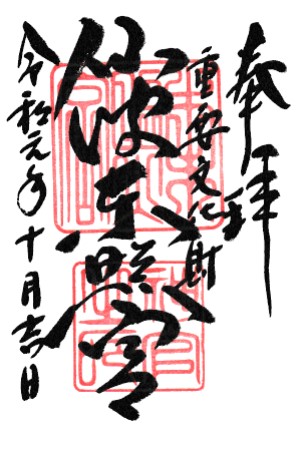 奉拝
重要文化財
仙波東照宮
令和元年十月吉日